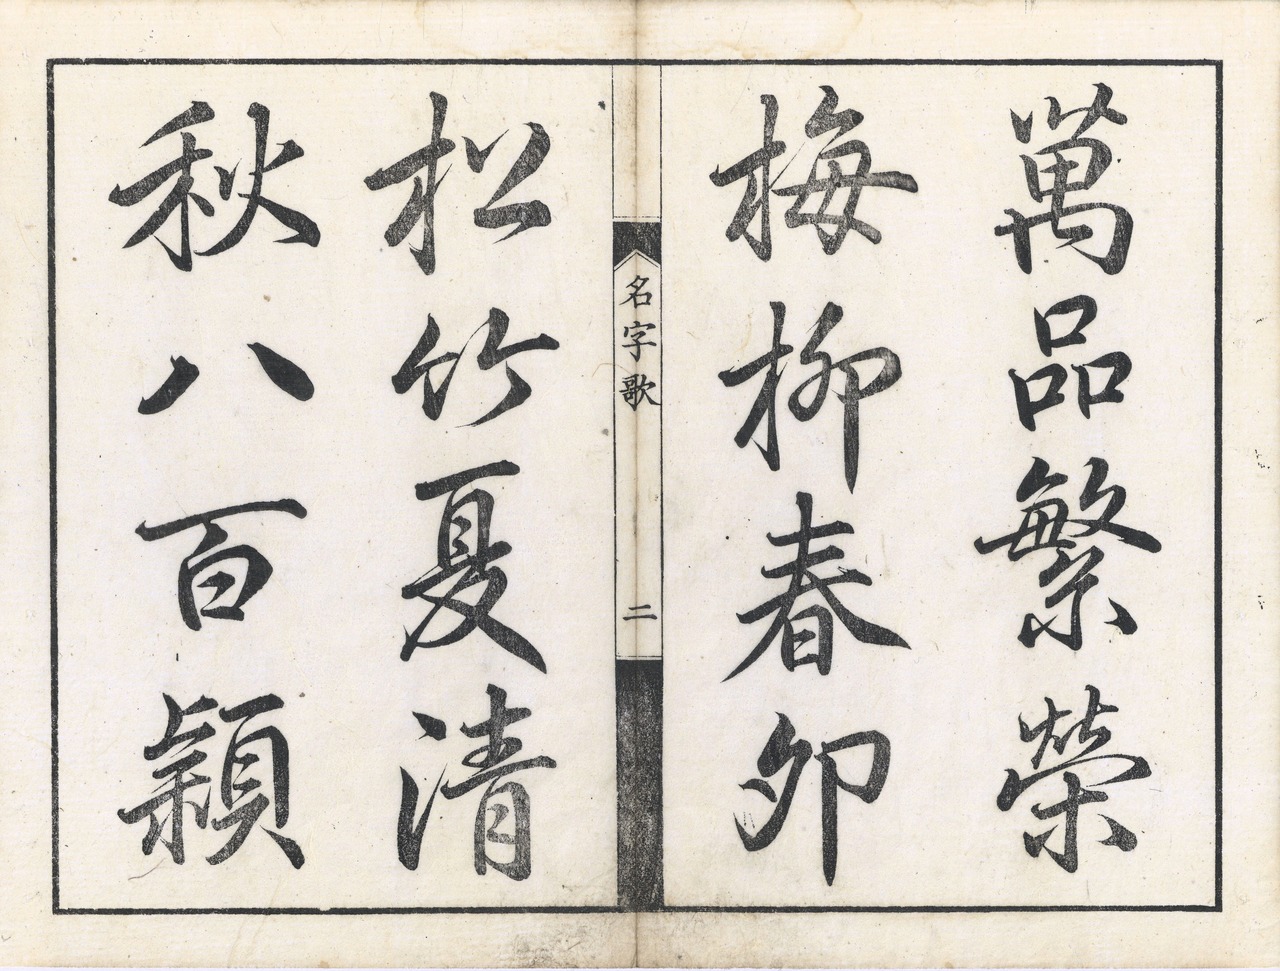 萬品繁榮
梅柳春卯
名字歌
二
松竹夏清
秋八百穎